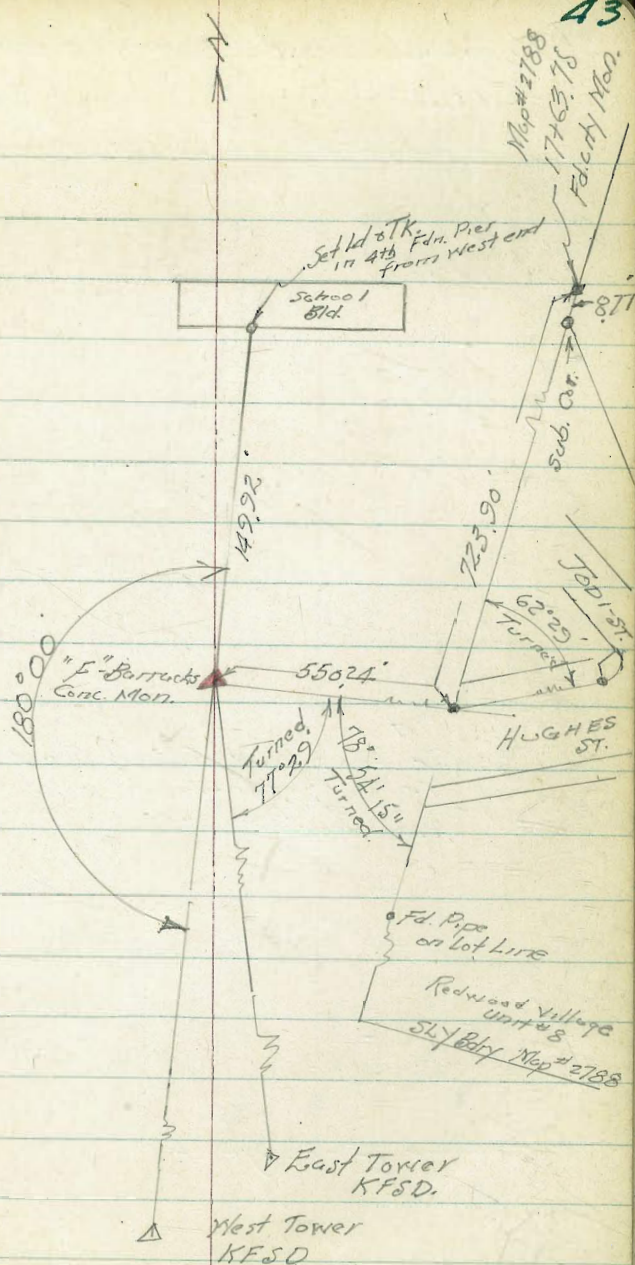 43
N
Map #2788
17+63.75
Fd. City Mon.
Set Ld & TK.
in 4th Fdn. Pier
from West end
School
Bld.
8.77'
Sub. Cor.
149.92'
723.90'
JODI-ST.
62°29'
Turned
180°00'
"F"-Barracks
Conc. Mon.
550.24'
HUGHES
ST.
Turned.
77°29
78°54'15"
Turned.
Fd. Pipe
on Lot Line
Redwood Village
Unit #8
SLY Bdry Map #2788
East Tower
KFSD.
West Tower
KFSD